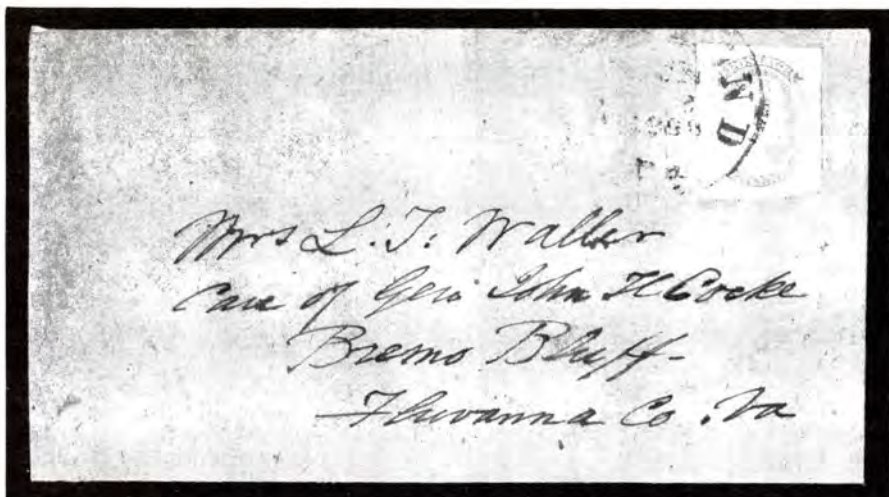 ND
Mrs L. T. Waller
Care of Gen John H Cocke
Bremo Bluff
Fluvanna Co. Va